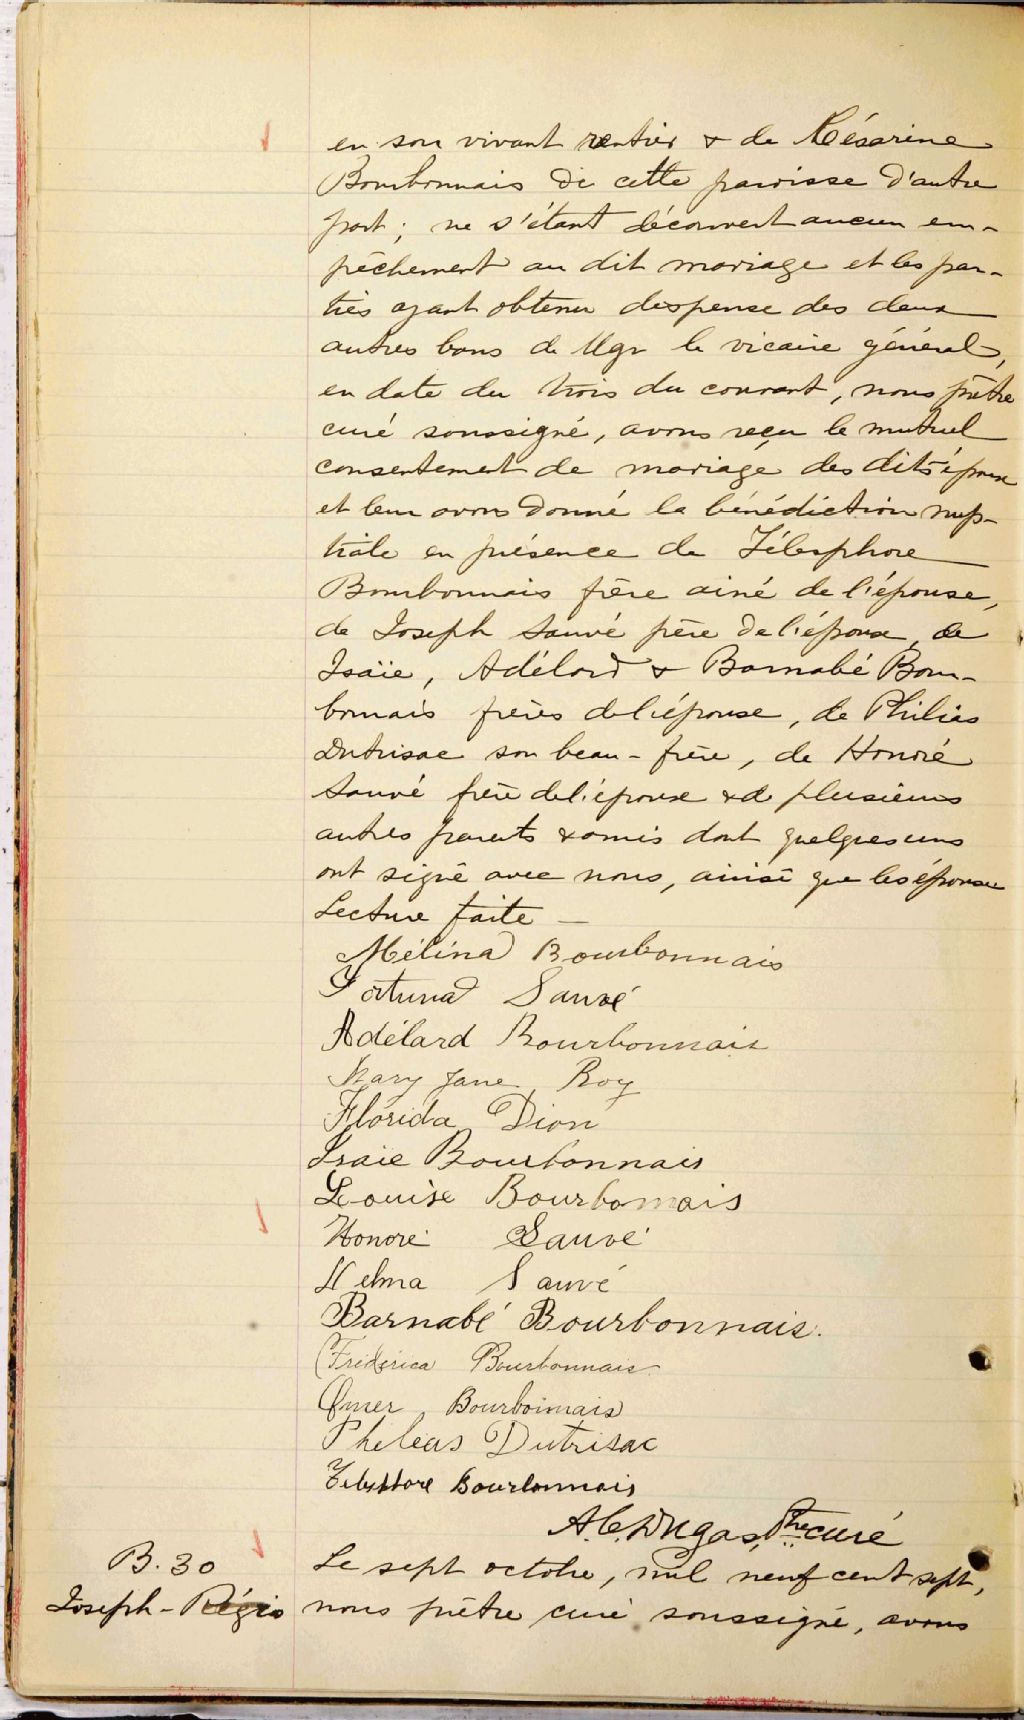 en son vivant rentier & de Césarine
Bourbonnais de cette paroisse d'autre
part ; ne s'étant découvert aucun em-
pêchement au dit mariage et les par-
ties ayant obtenu dispense des deux
autres bans de Mgr le vicaire général,
en date du trois du courant, nous prêtre
curé soussigné, avons reçu le mutuel
consentement de mariage des dits époux
et leur avons donné la bénédiction nup-
tiale en présence de Télesphore
Bourbonnais frère ainé de l'épouse,
de Joseph Sauvé père de l'époux, de
Isaïe, Adélard & Barnabé Bour-
bonnais frères de l'épouse, de Philias
Dutrisac son beau-frère, de Honoré
Sauvé frère de l'époux & de plusieurs
autres parents & amis dont quelques uns
ont signé avec nous, ainsi que les époux
Lecture faite —
Mélina Bourbonnais
Fortunat Sauvé
Adélard Bourbonnais
Mary Jane Roy
Florida Dion
Isaie Bourbonnais
Louise Bourbonnais
Honoré Sauvé
Velma Sauvé
Barnabé Bourbonnais.
Fridirica Bourbonnais
Omer Bourbonnais
Pheleas Dutrisac
Bourbonnais
A.C. Dugas, Ptre curé
B. 30
Joseph-Régis
Le sept octobre, mil neuf cent sept,
nous prêtre curé soussigné, avons